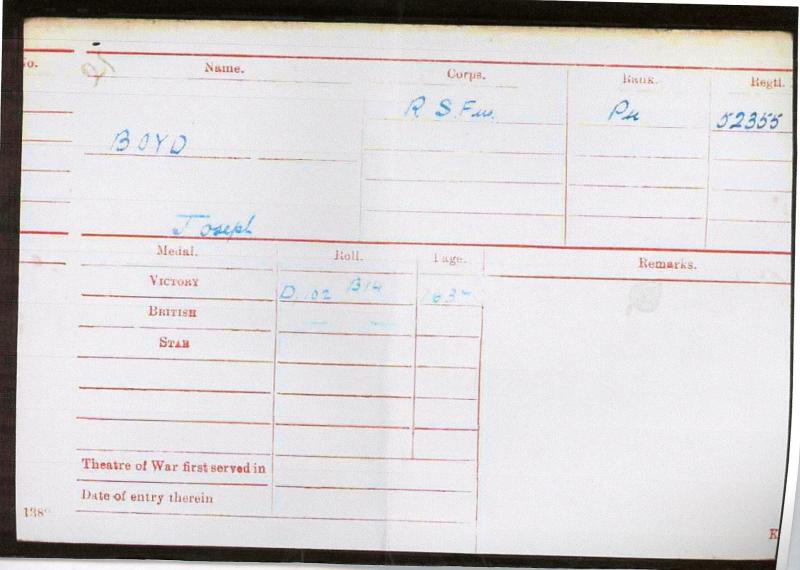 Name. Corps. Rank. Regtl.
R. S. Fus. 52355
BOYD
Joseph
Medal. Roll. Page. Remarks.
VICTORY D. 102 B14
BRITISH
STAR
Theatre of War first served in
Date of entry therein